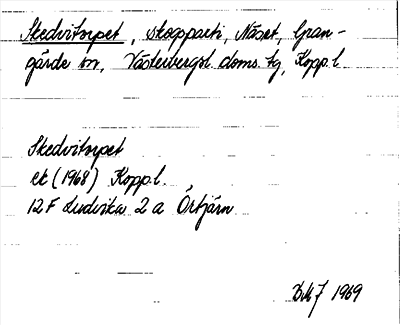 Skedvitorpet, skogsparti, Näset, Gran-
gärde sn, Västerbergsl. doms. tg, Kopp. l.
Skedvitorpet
ek (1968) Kopp. l.
12 F Ludvika 2 a Örtjärn
1969